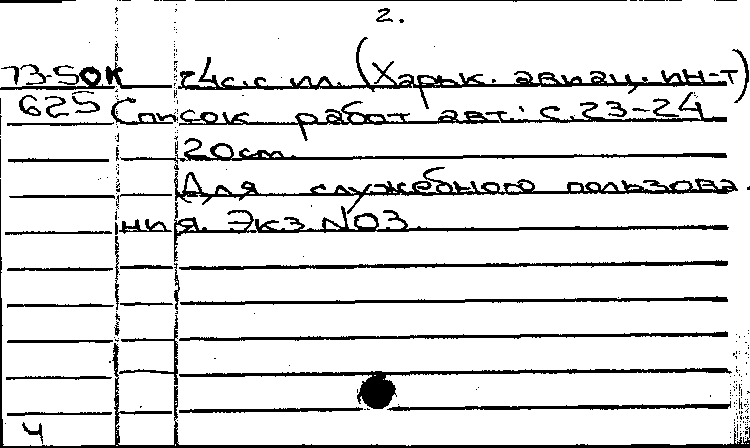 2.
73-50К 24с. с ил. (Харьк. авиац. ин-т)
625 Список работ авт.: с. 23-24
20 см.
Для служебного пользова-
ния. Экз. №03.
4